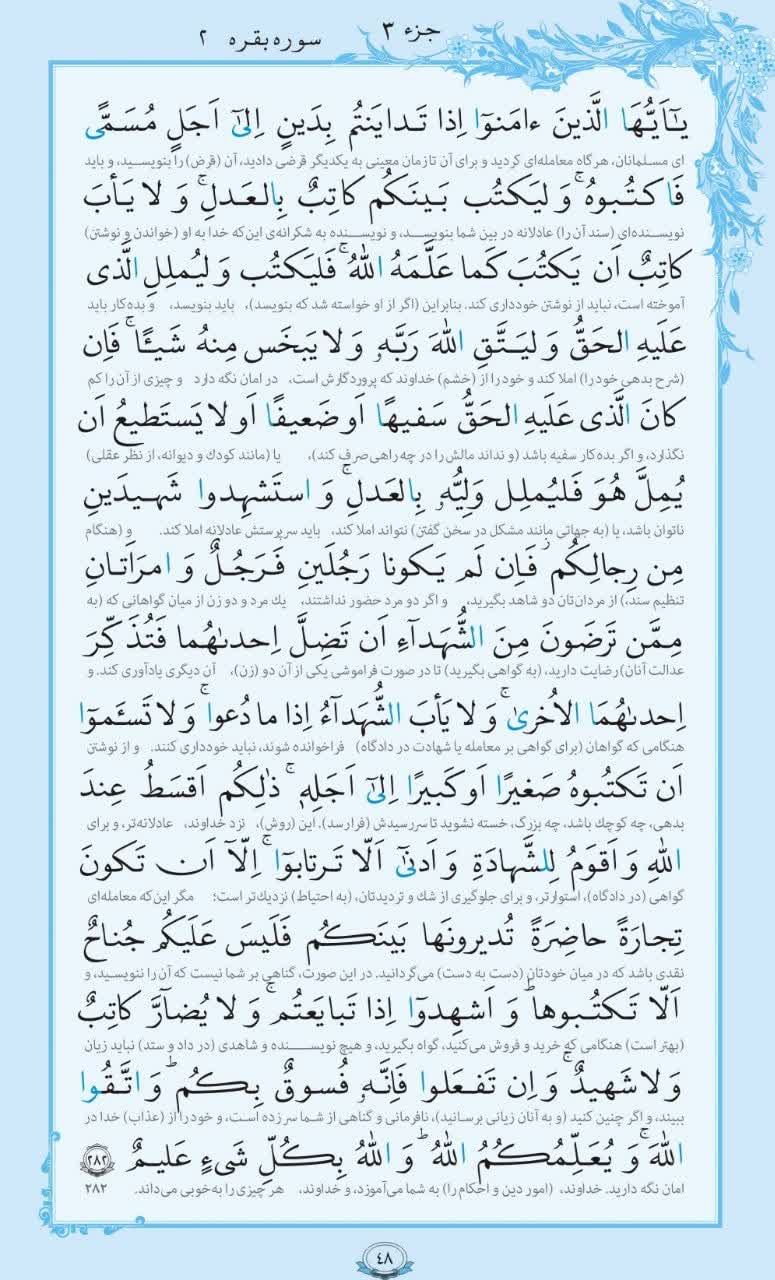 جزء ۳
سوره بقره ۲
يٰۤاَيُّهَا الَّذينَ ءامَنوۤا اِذا تَدايَنتُم بِدَينٍ اِلىٰۤ اَجَلٍ مُسَمًّى
ای مسلمانان، هرگاه معامله‌ای کردید و برای آن تا زمان معینی به یکدیگر قرضی دادید، آن (قرض) را بنویسید، و باید
فَاكتُبوهُ ۚ وَليَكتُب بَينَكُم كاتِبٌ بِالعَدلِ ۚ وَ لا يَأبَ
نویسنده‌ای (سند آن را) عادلانه در بین شما بنویسد، و نویسنده به شکرانه‌ی این‌که خدا به او (خواندن و نوشتن)
كاتِبٌ اَن يَكتُبَ كَما عَلَّمَهُ اللهُ ۚ فَليَكتُب وَليُملِلِ الَّذى
آموخته است، نباید از نوشتن خودداری کند. بنابراین (اگر از او خواسته شد که بنویسد)، باید بنویسد، و بده‌کار باید
عَلَيهِ الحَقُّ وَليَتَّقِ اللهَ رَبَّهٗ وَ لا يَبخَس مِنهُ شَيـًٔا ۚ فَاِن
(شرح بدهی خود را) املا کند و خود را از (خشم) خداوند که پروردگارش است، در امان نگه دارد و چیزی از آن را کم
كانَ الَّذى عَلَيهِ الحَقُّ سَفيهًا اَو ضَعيفًا اَو لا يَستَطيعُ اَن
نگذارد، و اگر بده‌کار سفیه باشد (و نداند مالش را در چه راهی صرف کند)، یا (مانند کودك و دیوانه، از نظر عقلی)
يُمِلَّ هُوَ فَليُملِل وَلِيُّهٗ بِالعَدلِ ۚ وَ استَشهِدوا شَهيدَينِ
ناتوان باشد، یا (به جهاتی مانند مشکل در سخن گفتن) نتواند املا کند، باید سرپرستش عادلانه املا کند. و (هنگام
مِن رِجالِكُم ۖ فَاِن لَم يَكونا رَجُلَينِ فَرَجُلٌ وَ امرَاَتانِ
تنظیم سند)، از مردان‌تان دو شاهد بگیرید، و اگر دو مرد حضور نداشتند، يك مرد و دو زن از میان گواهانی که (به
مِمَّن تَرضَونَ مِنَ الشُّهَدآءِ اَن تَضِلَّ اِحدىٰهُما فَتُذَكِّرَ
عدالت آنان) رضایت دارید، (به گواهی بگیرید) تا در صورت فراموشی یکی از آن دو (زن)، آن دیگری یادآوری کند. و
اِحدىٰهُمَا الاُخرىٰ ۚ وَ لا يَأبَ الشُّهَدآءُ اِذا ما دُعوا ۚ وَ لا تَسـَٔموۤا
هنگامی که گواهان (برای گواهی بر معامله یا شهادت در دادگاه) فراخوانده شوند، نباید خودداری کنند. و از نوشتن
اَن تَكتُبوهُ صَغيرًا اَو كَبيرًا اِلىٰۤ اَجَلِهٖ ۚ ذٰلِكُم اَقسَطُ عِندَ
بدهی، چه کوچك باشد، چه بزرگ، خسته نشوید تا سررسیدش (فرا رسد). این (روش)، نزد خداوند، عادلانه‌تر، و برای
اللهِ وَ اَقوَمُ لِلشَّهادَةِ وَ اَدنىٰۤ اَلّا تَرتابوۤا ۖ اِلّاۤ اَن تَكونَ
گواهی (در دادگاه)، استوارتر، و برای جلوگیری از شك و تردیدتان، (به احتیاط) نزديك‌تر است؛ مگر این‌که معامله‌ای
تِجارَةً حاضِرَةً تُديرونَها بَينَكُم فَلَيسَ عَلَيكُم جُناحٌ
نقدی باشد که در میان خودتان (دست به دست) می‌گردانید. در این صورت، گناهی بر شما نیست که آن را ننویسید، و
اَلّا تَكتُبوها ۗ وَ اَشهِدوۤا اِذا تَبايَعتُم ۚ وَ لا يُضآرَّ كاتِبٌ
(بهتر است) هنگامی که خرید و فروش می‌کنید، گواه بگیرید، و هیچ نویسنده و شاهدی (در داد و ستد) نباید زیان
وَ لا شَهيدٌ ۚ وَ اِن تَفعَلوا فَاِنَّهٗ فُسوقٌ بِكُم ۗ وَ اتَّقُوا
ببیند، و اگر چنین کنید (و به آنان زیانی برسانید)، نافرمانی و گناهی از شما سر زده است، و خود را از (عذاب) خدا در
اللهَ ۖ وَ يُعَلِّمُكُمُ اللهُ ۗ وَ اللهُ بِكُلِّ شَىءٍ عَليمٌ ۲۸۲
امان نگه دارید. خداوند، (امور دین و احکام را) به شما می‌آموزد، و خداوند، هر چیزی را به‌خوبی می‌داند. ۲۸۲
٤٨